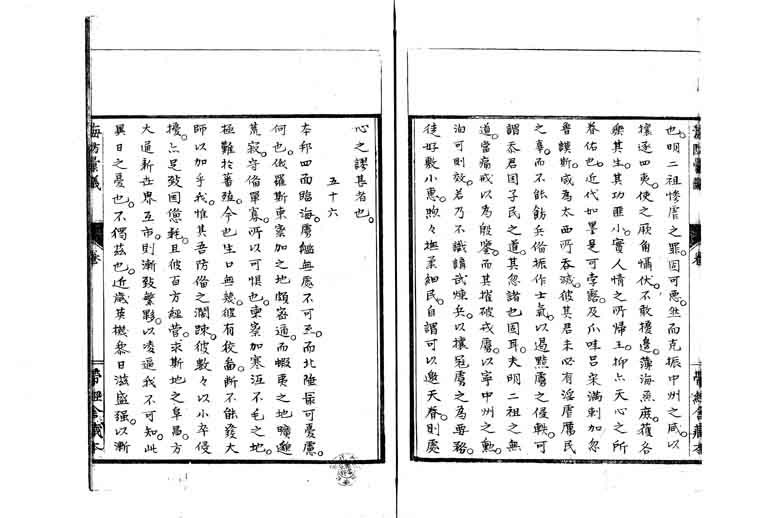 也。明二祖慘虐之罪。固可惡。然而克振中州之威。以
攘逐四夷。使之厥角懾伏。不敢擾邊。薄海黎庶。獲各
樂其生。其功匪小。實人情之所帰。王抑亦天心之所
眷佑也。近代如墨是可。孛露。及爪哇呂宋滿剌加忽
魯謨斯。咸為太西所呑滅。彼其君未必有淫虐厲民
之事。而不能飭兵俻振作士氣。以遏黠虜之侵軼。可
謂忝君国子民之道。其忽諸也固耳。夫明二祖之無
道。當痛戒以為殷鑒。而其摧破戎虜。以寧中州之勲。
泊可則效。若乃不識詰武煉兵。以攘冦虜之為要務。
徒好敷小惠。煦々撫柔細民。自謂可以邀天眷。則
心之謬甚者也。
五十六
本邦四面臨海。虜艦無處不可至。而北陸㝡可憂慮。
何也。俄羅斯東察加之地。頗密通。而蝦夷之地。曠邈
荒寂。守俻單寡。所以可惧也。東察加寒沍不毛之地。
極難於蕃殖。今也生口無幾。彼有狡啚。断不能發大
師以加乎我。惟其吾防俻之濶踈。彼數々以小卒侵
擾。亦足致困憊耗。且彼百方經営。求斯地之阜昌。方
大通新世界互市。則漸致繁夥。以凌逼我。不可知。此
異日之憂也。不獨茲也。近歳英機黎日滋盛强。以漸
海防彙議
卷
帶經舎藏本
卷
帶經舎藏本